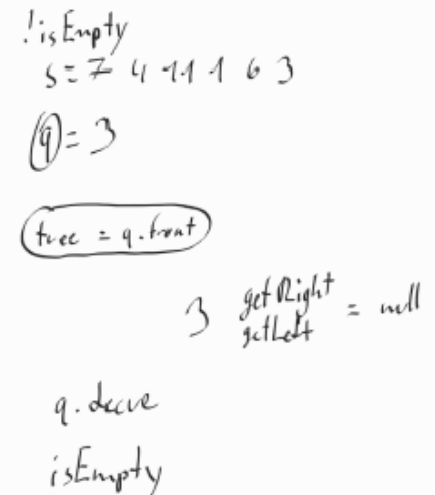 !isEmpty
s = 7 4 11 1 6 3
q = 3
tree = q.front
3 getRight
getLeft = null
q.decue
isEmpty